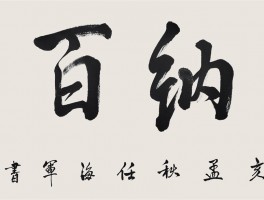 纳百
亥孟秋任海軍書